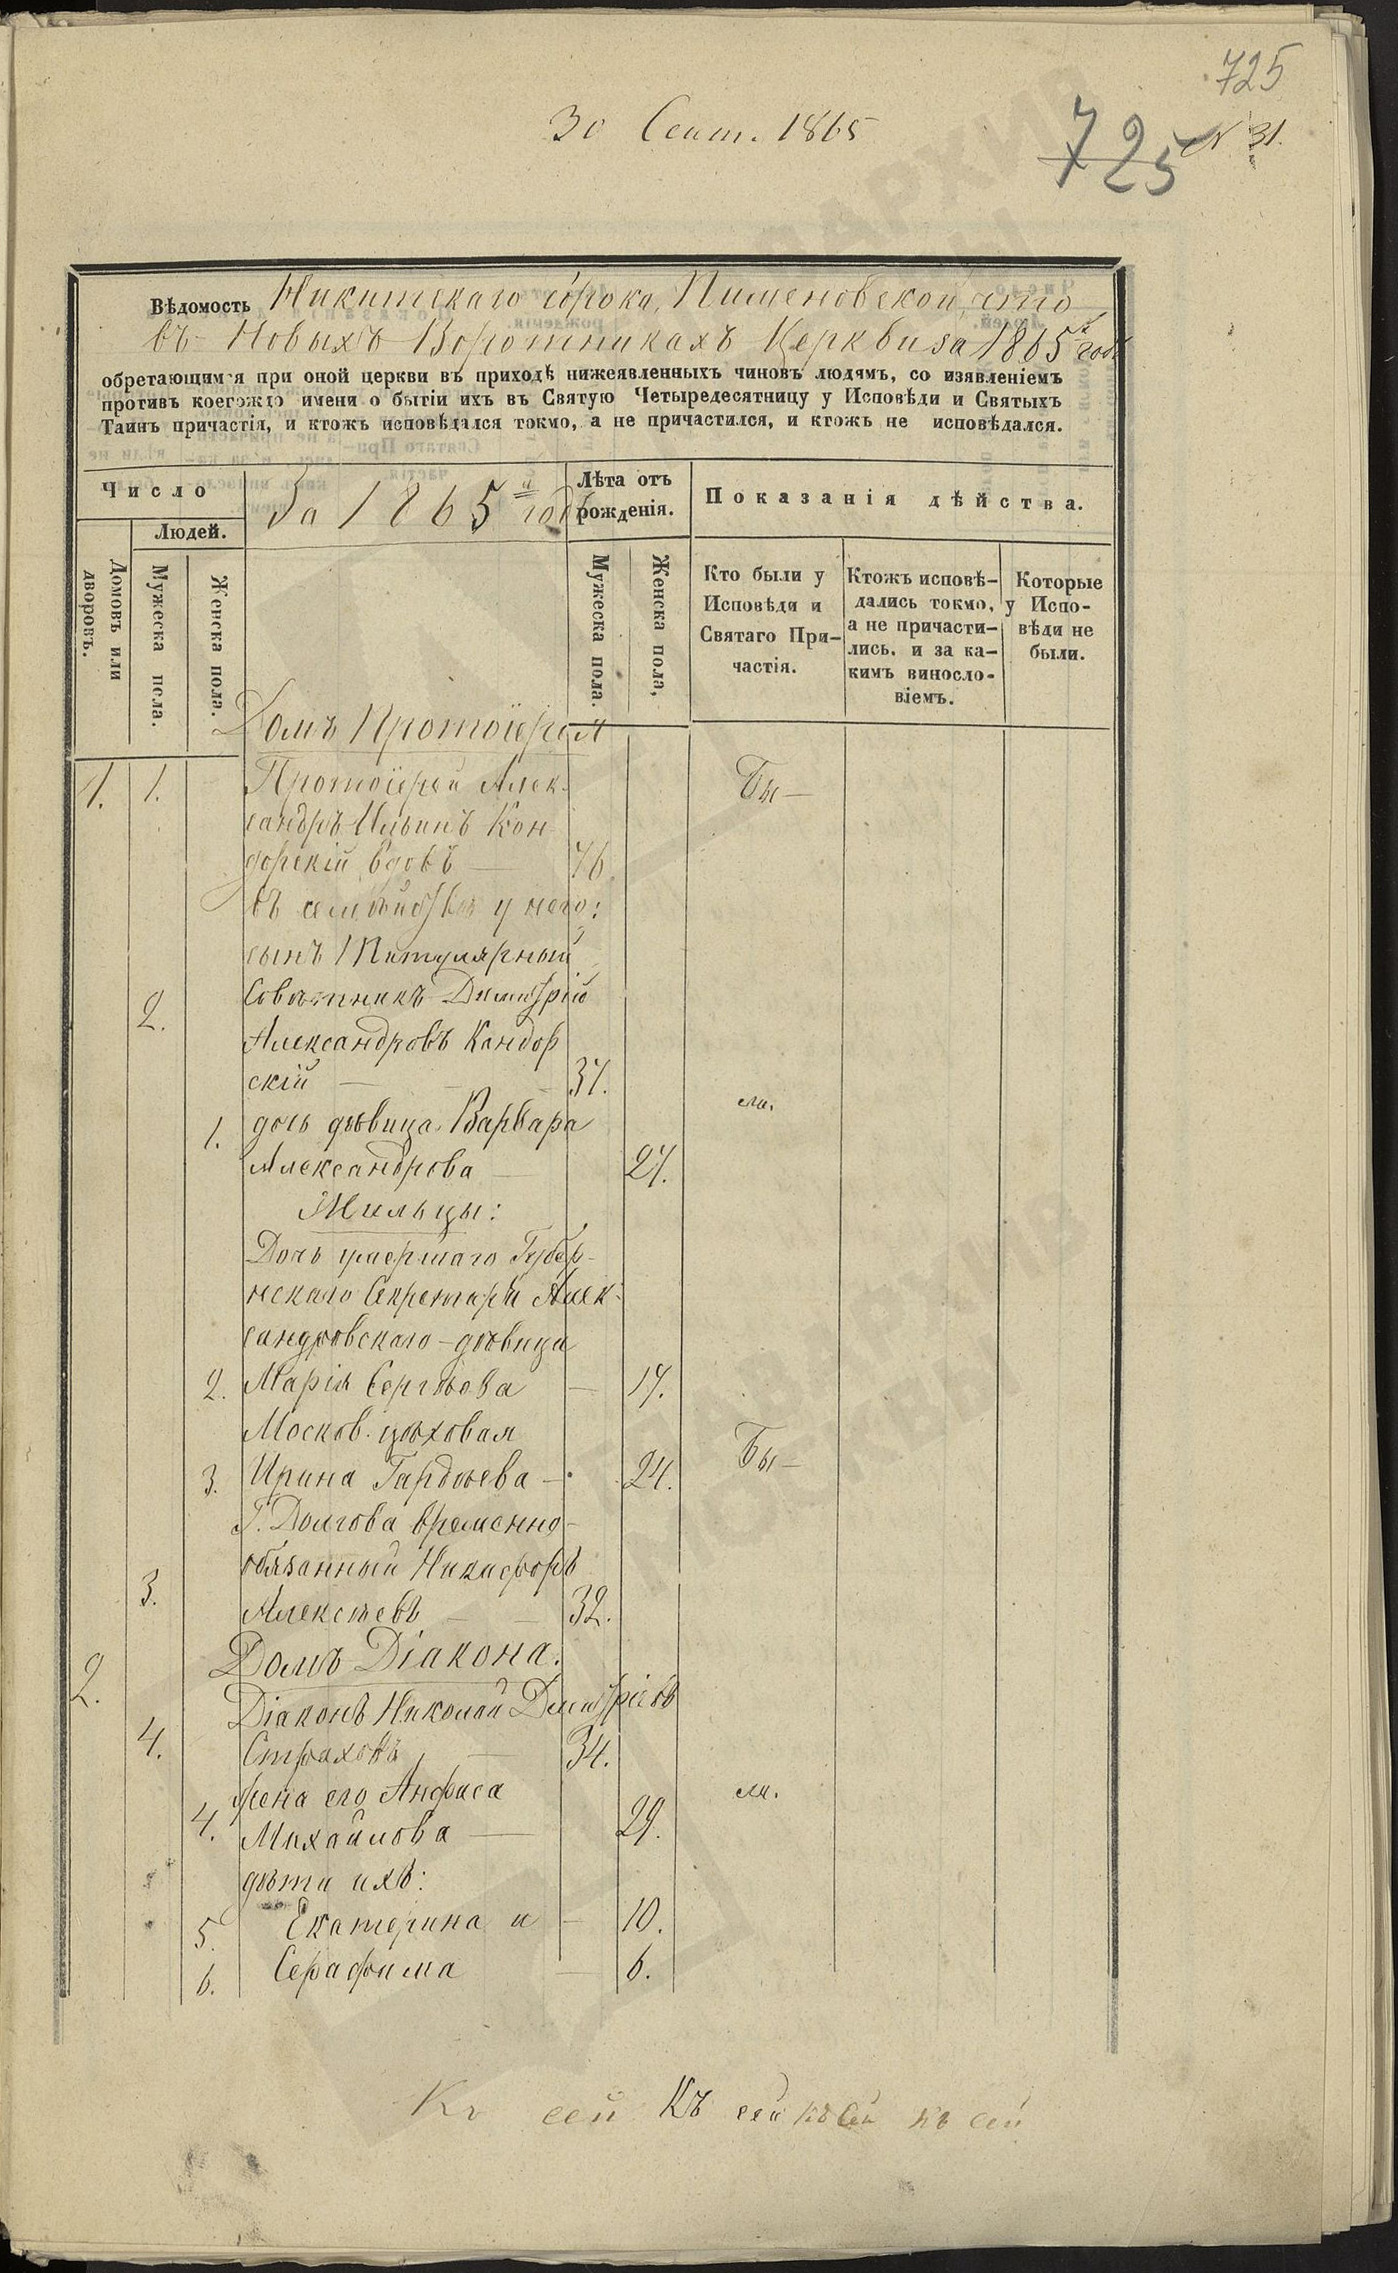 725
30 Сент. 1865
725 N 31.
Вѣдомость Никитскаго сорока, Пименовской, что
въ Новыхъ Воротникахъ Церкви за 1865й годъ
обретающимся при оной церкви въ приходѣ нижеявленныхъ чиновъ людямъ, со изявленіемъ
противъ коегождо имени о бытіи ихъ въ Святую Четыредесятницу у Исповѣди и Святыхъ
Таинъ причастія, и ктожъ исповѣдался токмо, а не причастился, и ктожъ не исповѣдался.
Число
За 1865й годъ
Лѣта отъ
рожденія.
Показанія дѣйства.
Людей.
Домовъ или
дворовъ.
Мужеска пола.
Женска пола.
Мужеска пола.
Женска пола,
Кто были у
Исповѣди и
Святаго При-
частія.
Ктожъ исповѣ-
дались токмо,
а не причасти-
лись. и за ка-
кимъ виносло-
віемъ.
Которые
у Испо-
вѣди не
были.
Домъ Протоіерея
1. 1. Протоіерей Алек- Бы—
сандръ Ильинъ Кон
дорскій вдовъ — 76
въ семействѣ у него:
сынъ Титулярный
2. Совѣтникъ Димитрій
Александровъ Кандор
скій — 37.
1. дочь дѣвица Варвара ли.
Александрова — 27.
Жильцы:
Дочь умершаго Губер-
нскаго Секретаря Алек-
сандровскаго - дѣвица
2. Марія Сергѣева — 17.
Москов. цѣховая
3. Ирина Гордѣева — 24. Бы—
Г. Долгова временно-
обязанный Никифоръ
3. Алексѣевъ — 32.
2. Домъ Діакона.
Діаконъ Николай Димитріевъ
4. Страховъ — 34.
жена его Анфиса ли.
4. Михайлова — 29.
дѣти ихъ:
5. Екатерина и — 10.
6. Серафима — 6.
Къ сей Къ сей къ сей къ сей
ГЛАВАРХИВ
МОСКВЫ